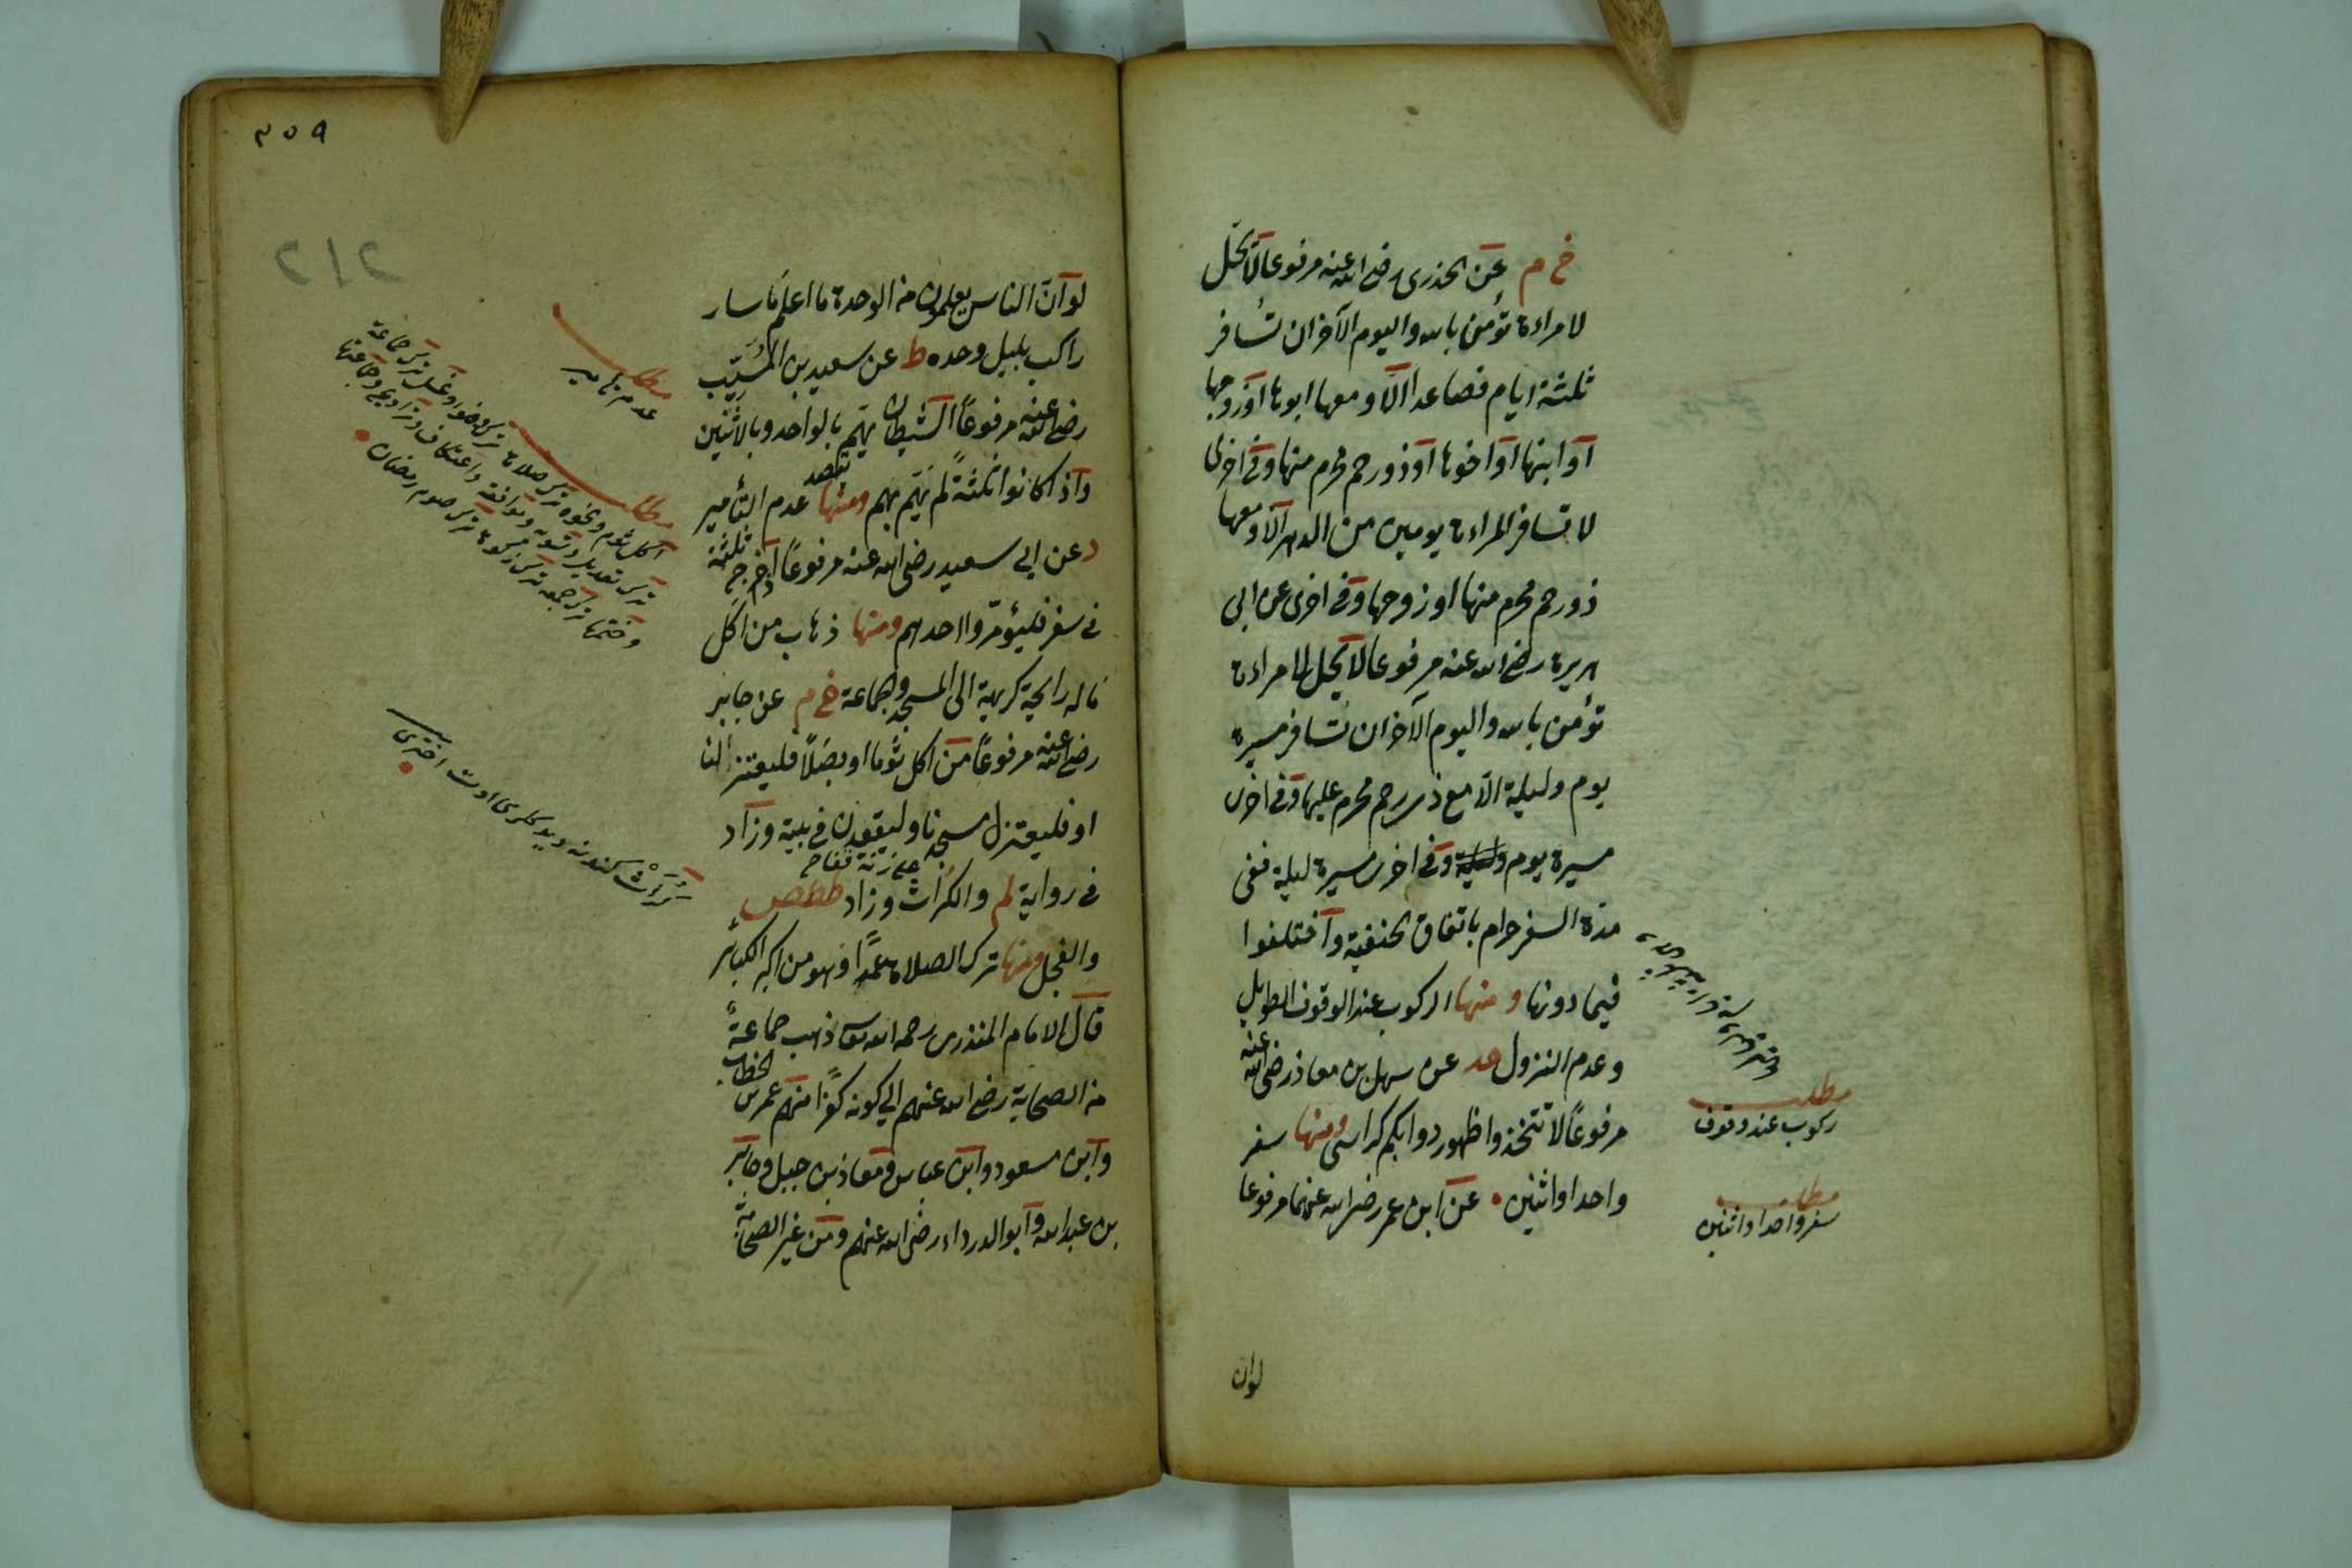 خ م عن الخدرى رضى الله عنه مرفوعا لا يحل
لامراءة تؤمن بالله واليوم الآخر ان تسافر
ثلثة ايام فصاعدا الا ومعها ابوها او زوجها
او ابنها او اخوها او ذو رحم محرم منها وفى اخرى
لا تسافر المراءة يومين من الدهر الا ومعها
ذو رحم محرم منها او زوجها وفى اخرى عن ابى
هريرة رضى الله عنه مرفوعا لا يحل لامراءة
تؤمن بالله واليوم الآخر ان تسافر مسيرة
يوم وليلة الا مع ذى رحم محرم عليها وفى اخرى
مسيرة يوم وليلة وفى اخرى مسيرة ليلة ففى
مدة السفر حرام باتفاق الحنفية واختلفوا
فيما دونها ومنها الركوب عند الوقوف الطويل
وعدم النزول حد عن سهل بن معاذ رضى الله عنه
مرفوعاً لا تتخذوا ظهور دوابكم كراسى ومنها سفر
واحد او اثنين عن ابن عمر رضى الله عنهما مرفوعا
مطلب
ركوب عند وقوف
مطلب
سفر واحد او اثنين
لو ان
٣٥٩
212
لو ان الناس يعلمون من الوحدة ما اعلم ما سار
راكب بليل وحده ط عن سعيد بن المسيّب
رضى الله عنه مرفوعاً الشيطان يهمّ بالواحد وبالاثنين
واذا كانوا ثلثةً لم يهمّ بهم ومنها عدم التأمير
د عن ابى سعيد رضى الله عنه مرفوعاً اذا خرج ثلثة
فى سفر فليؤمّروا احدهم ومنها ذهاب من اكل
ما له رايحة كريهة الى المسجد والجماعة خ م عن جابر
رضى الله عنه مرفوعاً من اكل ثوما او بصلاً فليعتزلنا
او فليعتزل مسجدنا وليقعدن فى بيته وزاد
فى رواية لم والكراث وزاد ططص
والفجل ومنها ترك الصلاة عمداً وهو من اكبر الكبائر
قال الامام المنذرى رحمه الله تعالى ذهب جماعةً
من الصحابة رضى الله عنهم الى كونه كفراً منهم عمر بن الخطاب
وابن مسعود وابن عباس ومعاذ بن جبل وجابر
بن عبد الله وابو الدرداء رضى الله عنهم ومن غير الصحابة
مطلب
عدم تأمير
مطلب
اكل ثوم ونحوه ترك صلاة ترك وضوء وغسل ترك جماعة
ترك تعديل وتسويه وموافقة واعتكاف وتراويح وجماعتها
وختمها ترك جمعه ترك زكوة ترك صوم رمضان